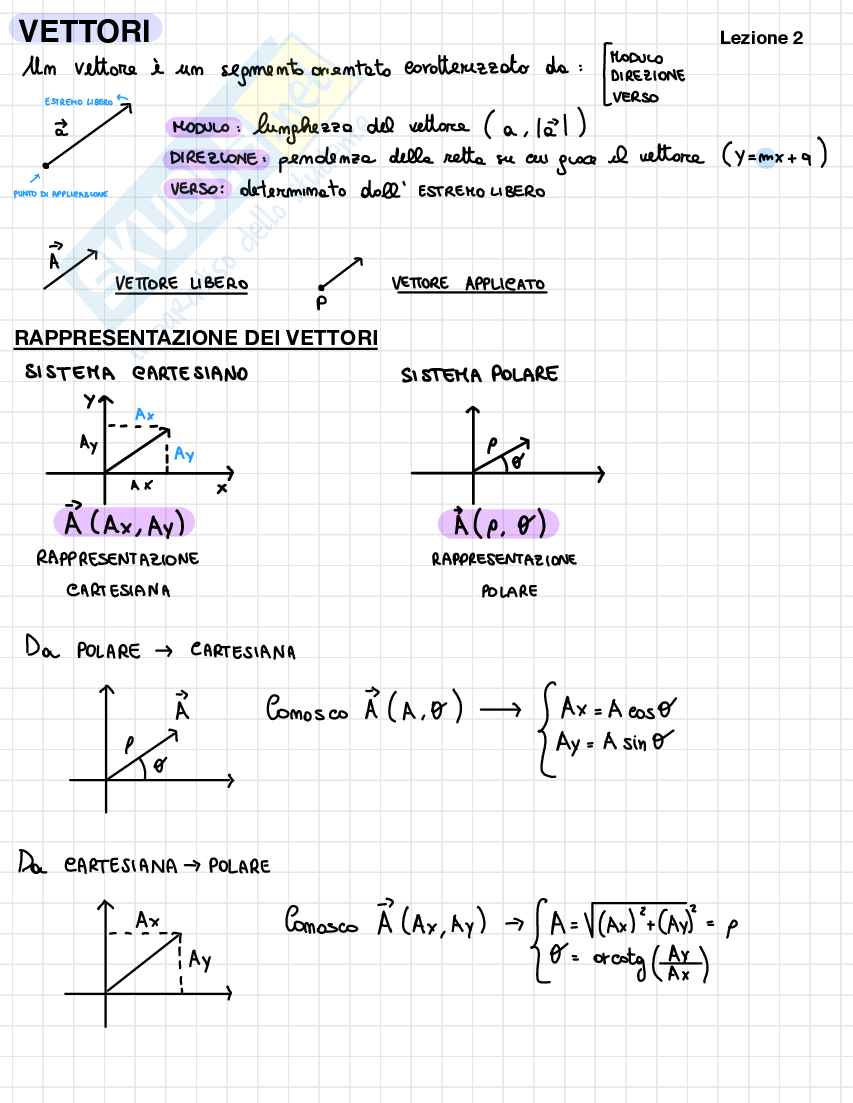 VETTORI
Lezione 2
Un vettore è un segmento orientato caratterizzato da:
MODULO
DIREZIONE
VERSO
ESTREMO LIBERO
a⃗
PUNTO DI APPLICAZIONE
MODULO: lunghezza del vettore (a, |a⃗|)
DIREZIONE: pendenza della retta su cui giace il vettore (y=mx+q)
VERSO: determinato dall' ESTREMO LIBERO
A⃗
VETTORE LIBERO
P
VETTORE APPLICATO
RAPPRESENTAZIONE DEI VETTORI
SISTEMA CARTESIANO
SISTEMA POLARE
y
Ax
Ay
Ay
Ax
x
ρ
θ
A⃗(Ax, Ay)
A⃗(ρ, θ)
RAPPRESENTAZIONE
CARTESIANA
RAPPRESENTAZIONE
POLARE
Da POLARE → CARTESIANA
A⃗
ρ
θ
Conosco A⃗(A, θ) →
Ax = A cosθ
Ay = A sinθ
Da CARTESIANA → POLARE
Ax
Ay
Conosco A⃗(Ax, Ay) →
A = √(Ax)²+(Ay)² = ρ
θ = arcotg(Ay/Ax)